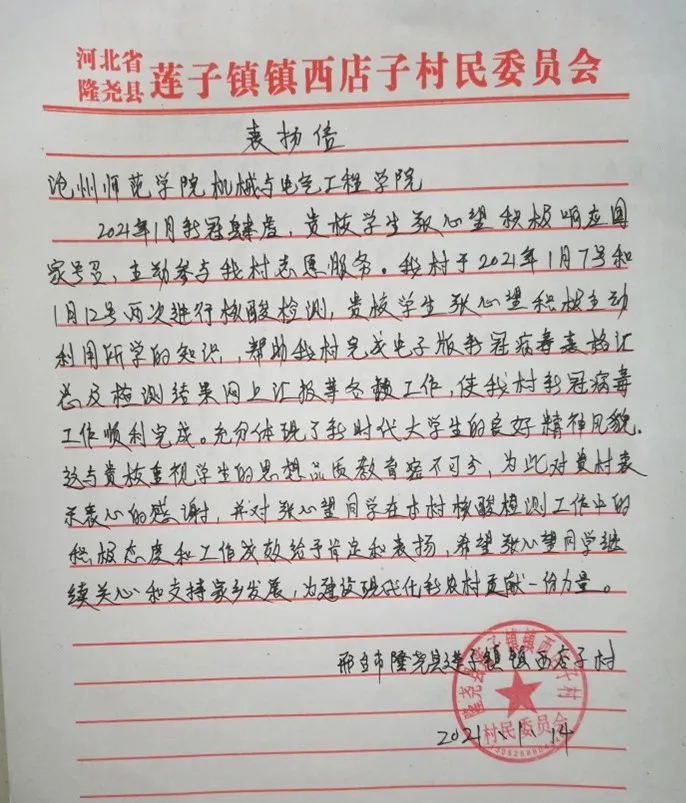 河北省
隆尧县 莲子镇镇西店子村民委员会
表扬信
沧州师范学院机械与电气工程学院
2021年1月新冠肆虐，贵校学生张心望积极响应国
家号召，主动参与我村志愿服务。我村于2021年1月7号和
1月12号两次进行核酸检测，贵校学生张心望积极主动
利用所学的知识，帮助我村完成电子版新冠病毒表格汇
总及检测结果网上汇报等各项工作，使我村新冠病毒
工作顺利完成。充分体现了新时代大学生的良好精神风貌.
这与贵校重视学生的思想品质教育密不可分，为此对贵村表
示衷心的感谢，并对张心望同学在本村核酸检测工作中的
积极态度和工作成效给予肯定和表扬，希望张心望同学继
续关心和支持家乡发展，为建设现代化新农村贡献一份力量。
邢台市隆尧县莲子镇镇西店子村
2021、1、14
隆尧县莲子镇镇西店子村
村民委员会